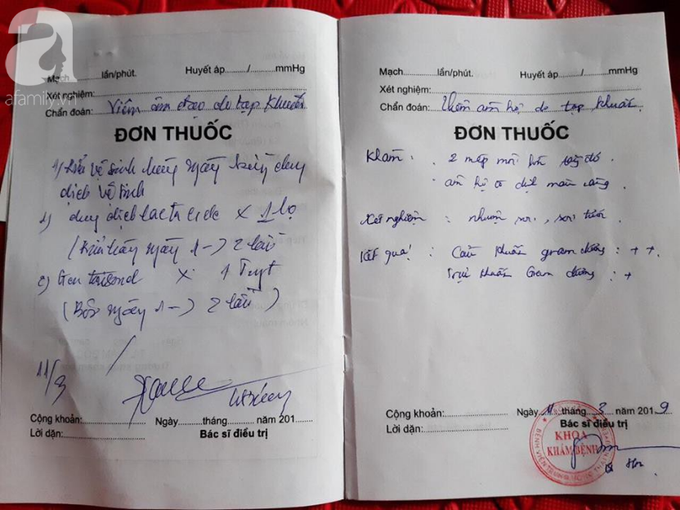 afamily.vn
Mạch..........lần/phút. Huyết áp........./.........mmHg
Xét nghiệm:
Chẩn đoán: Viêm âm đạo do tạp khuẩn
ĐƠN THUỐC
1) vệ sinh hàng ngày bằng dung
dịch vệ sinh
dung dịch lactacide x 1 lọ
ngày 1 -> 2 lần
x 1 Tuýt
(Bôi ngày 1 -> 2 lần)
11/3
Cộng khoản:
Ngày......tháng......năm 201....
Lời dặn: Bác sĩ điều trị
Mạch..........lần/phút. Huyết áp........./.........mmHg
Xét nghiệm:
Chẩn đoán: Viêm âm hộ do tạp khuẩn.
ĐƠN THUỐC
Khám : 2 mép môi lớn đỏ
âm hộ có dịch màu vàng.
Xét nghiệm : nhuộm soi, soi tươi.
Kết quả : Cầu khuẩn gram dương : + +
Trực khuẩn Gam dương : +
Cộng khoản:
Ngày 11 tháng 3 năm 2019
Lời dặn: Bác sĩ điều trị
KHOA
KHÁM BỆNH